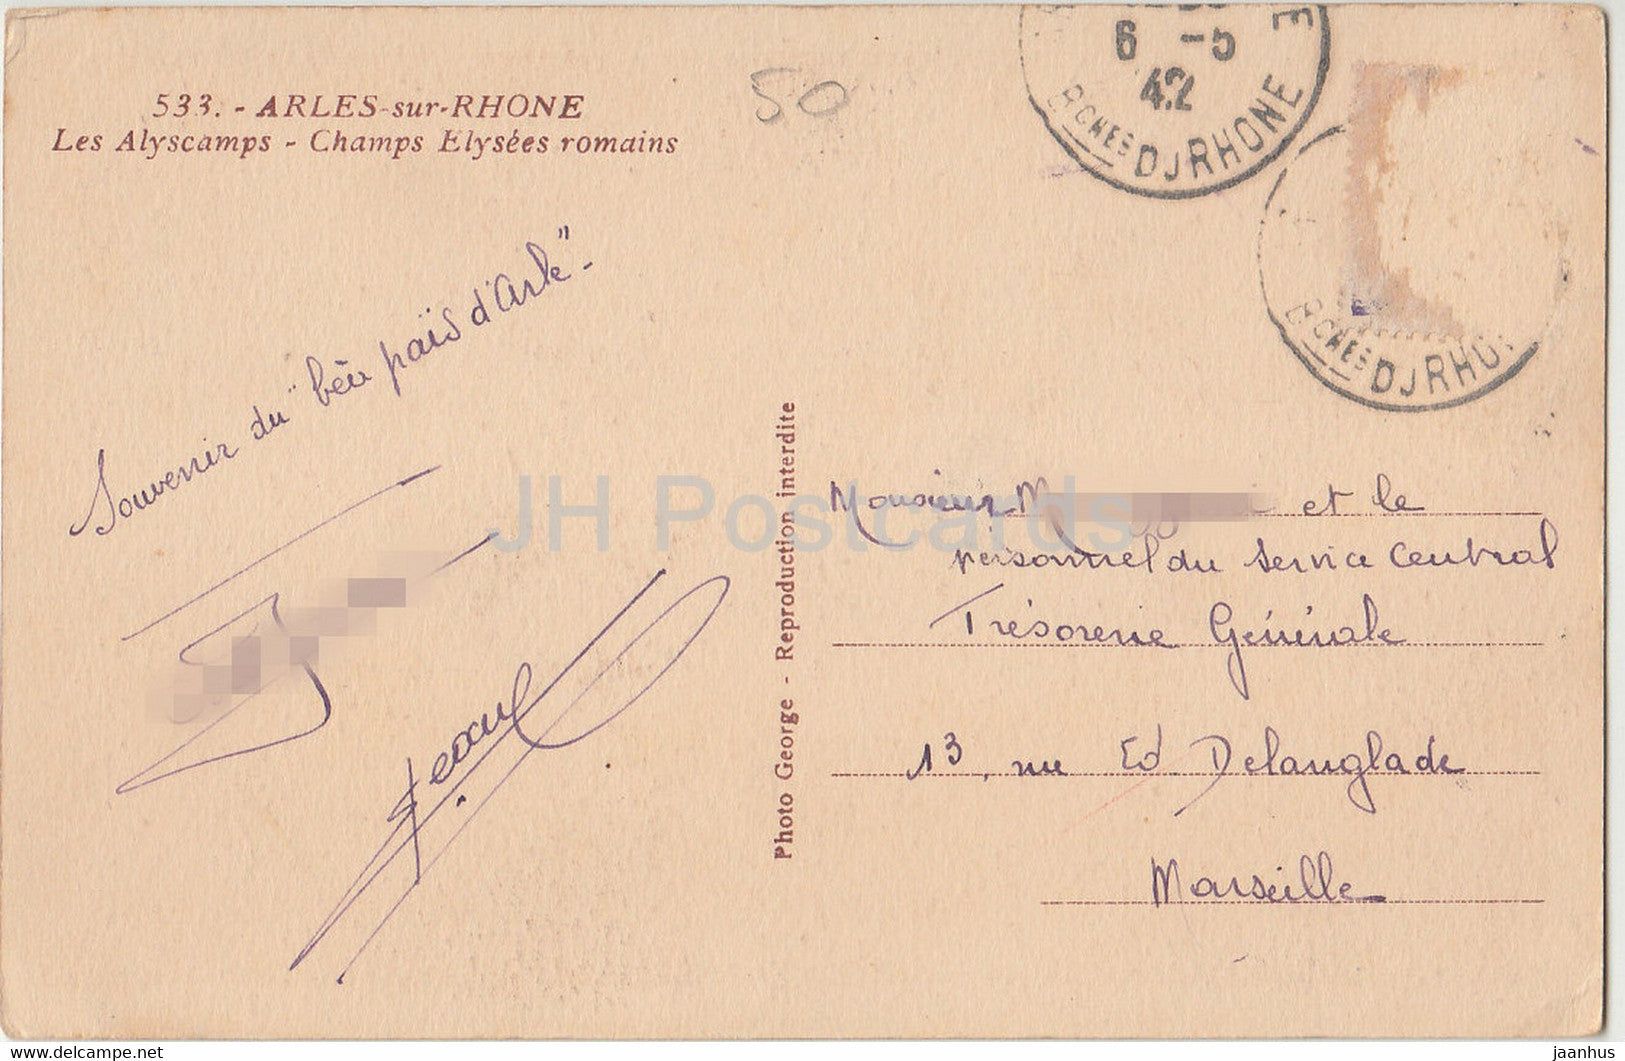 533. - ARLES-sur-RHONE
Les Alyscamps - Champs Elysées romains
50
6 -5
42
BCHES DU RHONE
BCHES DU RHO
Souvenir du "bèu païs d'Arle" -
Jean
Photo George - Reproduction interdite
Monsieur M et le
personnel du Service Central
Trésorerie Générale
13, rue Ed. Delanglade
Marseille
JH Postcards
jaanhus
delcampe.net